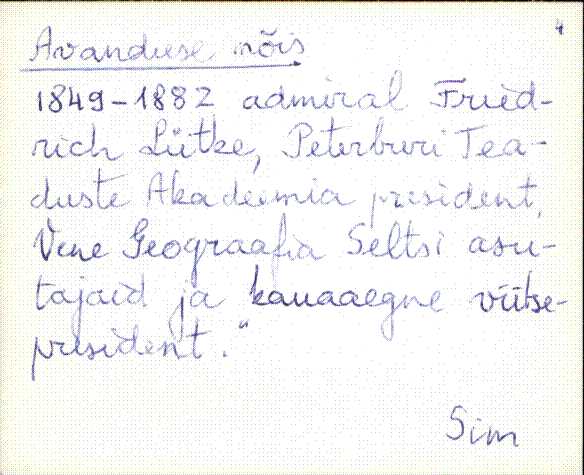 4
Avanduse mõis
1849-1882 admiral Fried-
rich Lütke, Peterburi Tea-
duste Akadeemia president,
Vene Geograafia Seltsi asu-
tajaid ja kauaaegne viitse-
president."
Sim